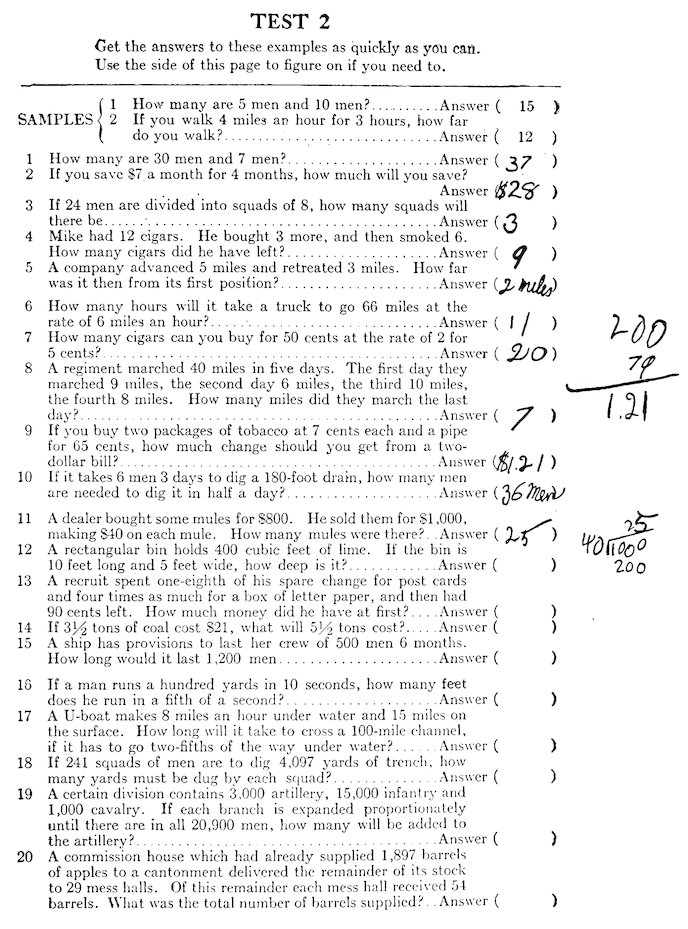 TEST 2
Get the answers to these examples as quickly as you can.
Use the side of this page to figure on if you need to.
SAMPLES { 1 How many are 5 men and 10 men?..........Answer ( 15 )
2 If you walk 4 miles an hour for 3 hours, how far
do you walk?................................Answer ( 12 )
1 How many are 30 men and 7 men?......................Answer ( 37 )
2 If you save $7 a month for 4 months, how much will you save?
Answer ($28 )
3 If 24 men are divided into squads of 8, how many squads will
there be..................................................Answer ( 3 )
4 Mike had 12 cigars. He bought 3 more, and then smoked 6.
How many cigars did he have left?......................Answer ( 9 )
5 A company advanced 5 miles and retreated 3 miles. How far
was it then from its first position?.......................Answer (2 miles)
6 How many hours will it take a truck to go 66 miles at the
rate of 6 miles an hour?..................................Answer ( 11 )
7 How many cigars can you buy for 50 cents at the rate of 2 for
5 cents?..................................................Answer ( 20 )
8 A regiment marched 40 miles in five days. The first day they
marched 9 miles, the second day 6 miles, the third 10 miles,
the fourth 8 miles. How many miles did they march the last
day?......................................................Answer ( 7 )
9 If you buy two packages of tobacco at 7 cents each and a pipe
for 65 cents, how much change should you get from a two-
dollar bill?..............................................Answer ($1.21)
10 If it takes 6 men 3 days to dig a 180-foot drain, how many men
are needed to dig it in half a day?......................Answer (36 men)
11 A dealer bought some mules for $800. He sold them for $1,000,
making $40 on each mule. How many mules were there?..Answer ( 25 )
12 A rectangular bin holds 400 cubic feet of lime. If the bin is
10 feet long and 5 feet wide, how deep is it?............Answer ( )
13 A recruit spent one-eighth of his spare change for post cards
and four times as much for a box of letter paper, and then had
90 cents left. How much money did he have at first?....Answer ( )
14 If 3½ tons of coal cost $21, what will 5½ tons cost?.....Answer ( )
15 A ship has provisions to last her crew of 500 men 6 months.
How long would it last 1,200 men.......................Answer ( )
16 If a man runs a hundred yards in 10 seconds, how many feet
does he run in a fifth of a second?......................Answer ( )
17 A U-boat makes 8 miles an hour under water and 15 miles on
the surface. How long will it take to cross a 100-mile channel,
if it has to go two-fifths of the way under water?......Answer ( )
18 If 241 squads of men are to dig 4,097 yards of trench, how
many yards must be dug by each squad?..............Answer ( )
19 A certain division contains 3,000 artillery, 15,000 infantry and
1,000 cavalry. If each branch is expanded proportionately
until there are in all 20,900 men, how many will be added to
the artillery?............................................Answer ( )
20 A commission house which had already supplied 1,897 barrels
of apples to a cantonment delivered the remainder of its stock
to 29 mess halls. Of this remainder each mess hall received 54
barrels. What was the total number of barrels supplied?..Answer ( )
200
79
1.21
25
40)1000
200